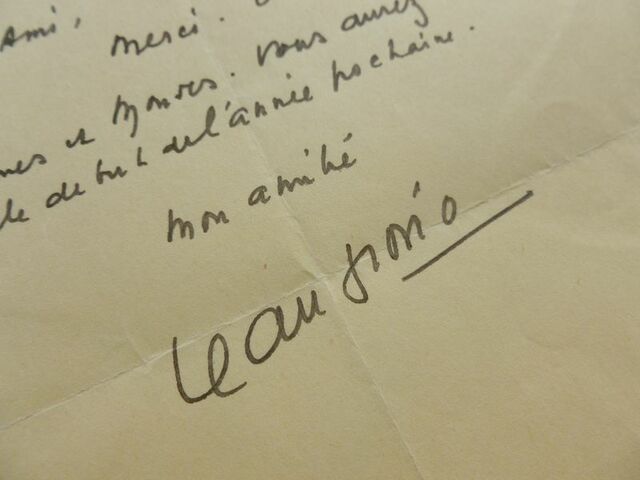 Ami,
Merci.
et Mondes. Vous aurez
le début de l'année prochaine.
mon amitié
Jean Giono